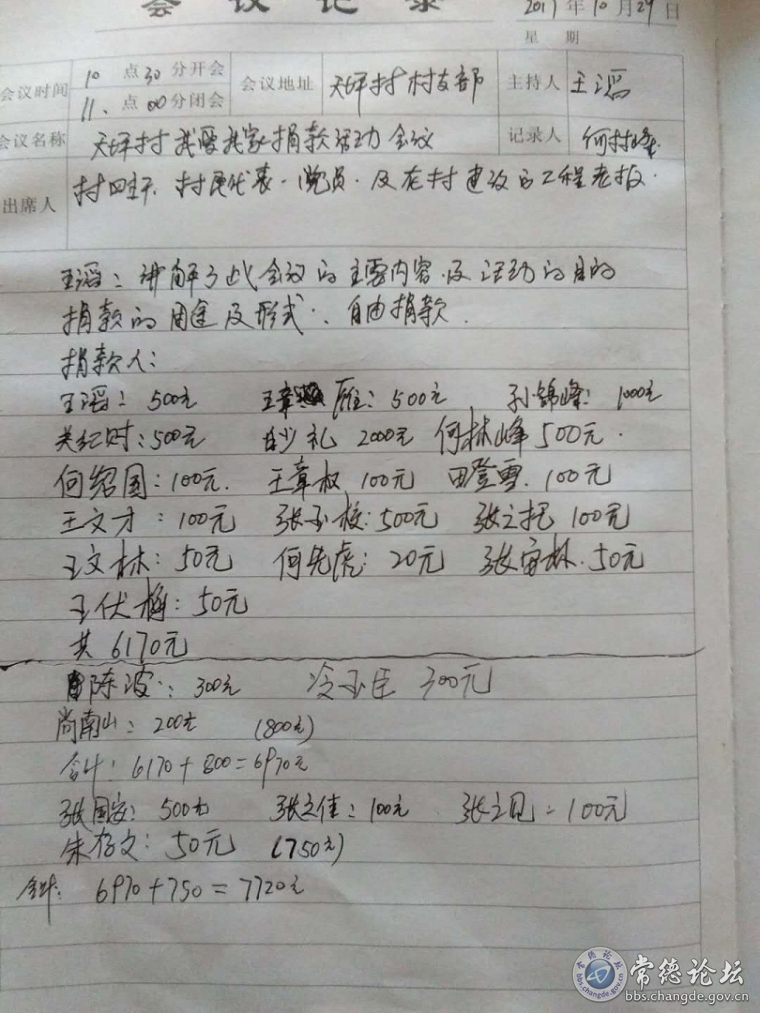 会议记录
2017年10月29日
星期
会议时间 10点30分开会 11点00分闭会 会议地址 天坪村村支部 主持人 王滔
会议名称 天坪村我爱我家捐款活动会议 记录人 何林峰
出席人 村四班、村民代表、党员、及在村建设的工程老板.
王滔：讲解了此会议的主要内容及活动的目的
捐款的用途及形式、自由捐款.
捐款人：
王滔：500元 王章雁：500元 孙锦峰：1000元
500元 2000元 何林峰500元.
何绍国：100元. 王章权 100元 田登雪.100元
王文才：100元 张玉枚：500元 张之 100元
王文林：50元 何先虎：20元 张宙林.50元
王伏梅：50元
共6170元
陈波：300元 冷玉臣 300元
尚南山：200元 (800元)
合计：6170+800=6970元
张国安：500元 张之佳：100元 张之见：100元
朱存文：50元 (750元)
合计：6970+750=7720元
常德论坛
bbs.changde.gov.cn